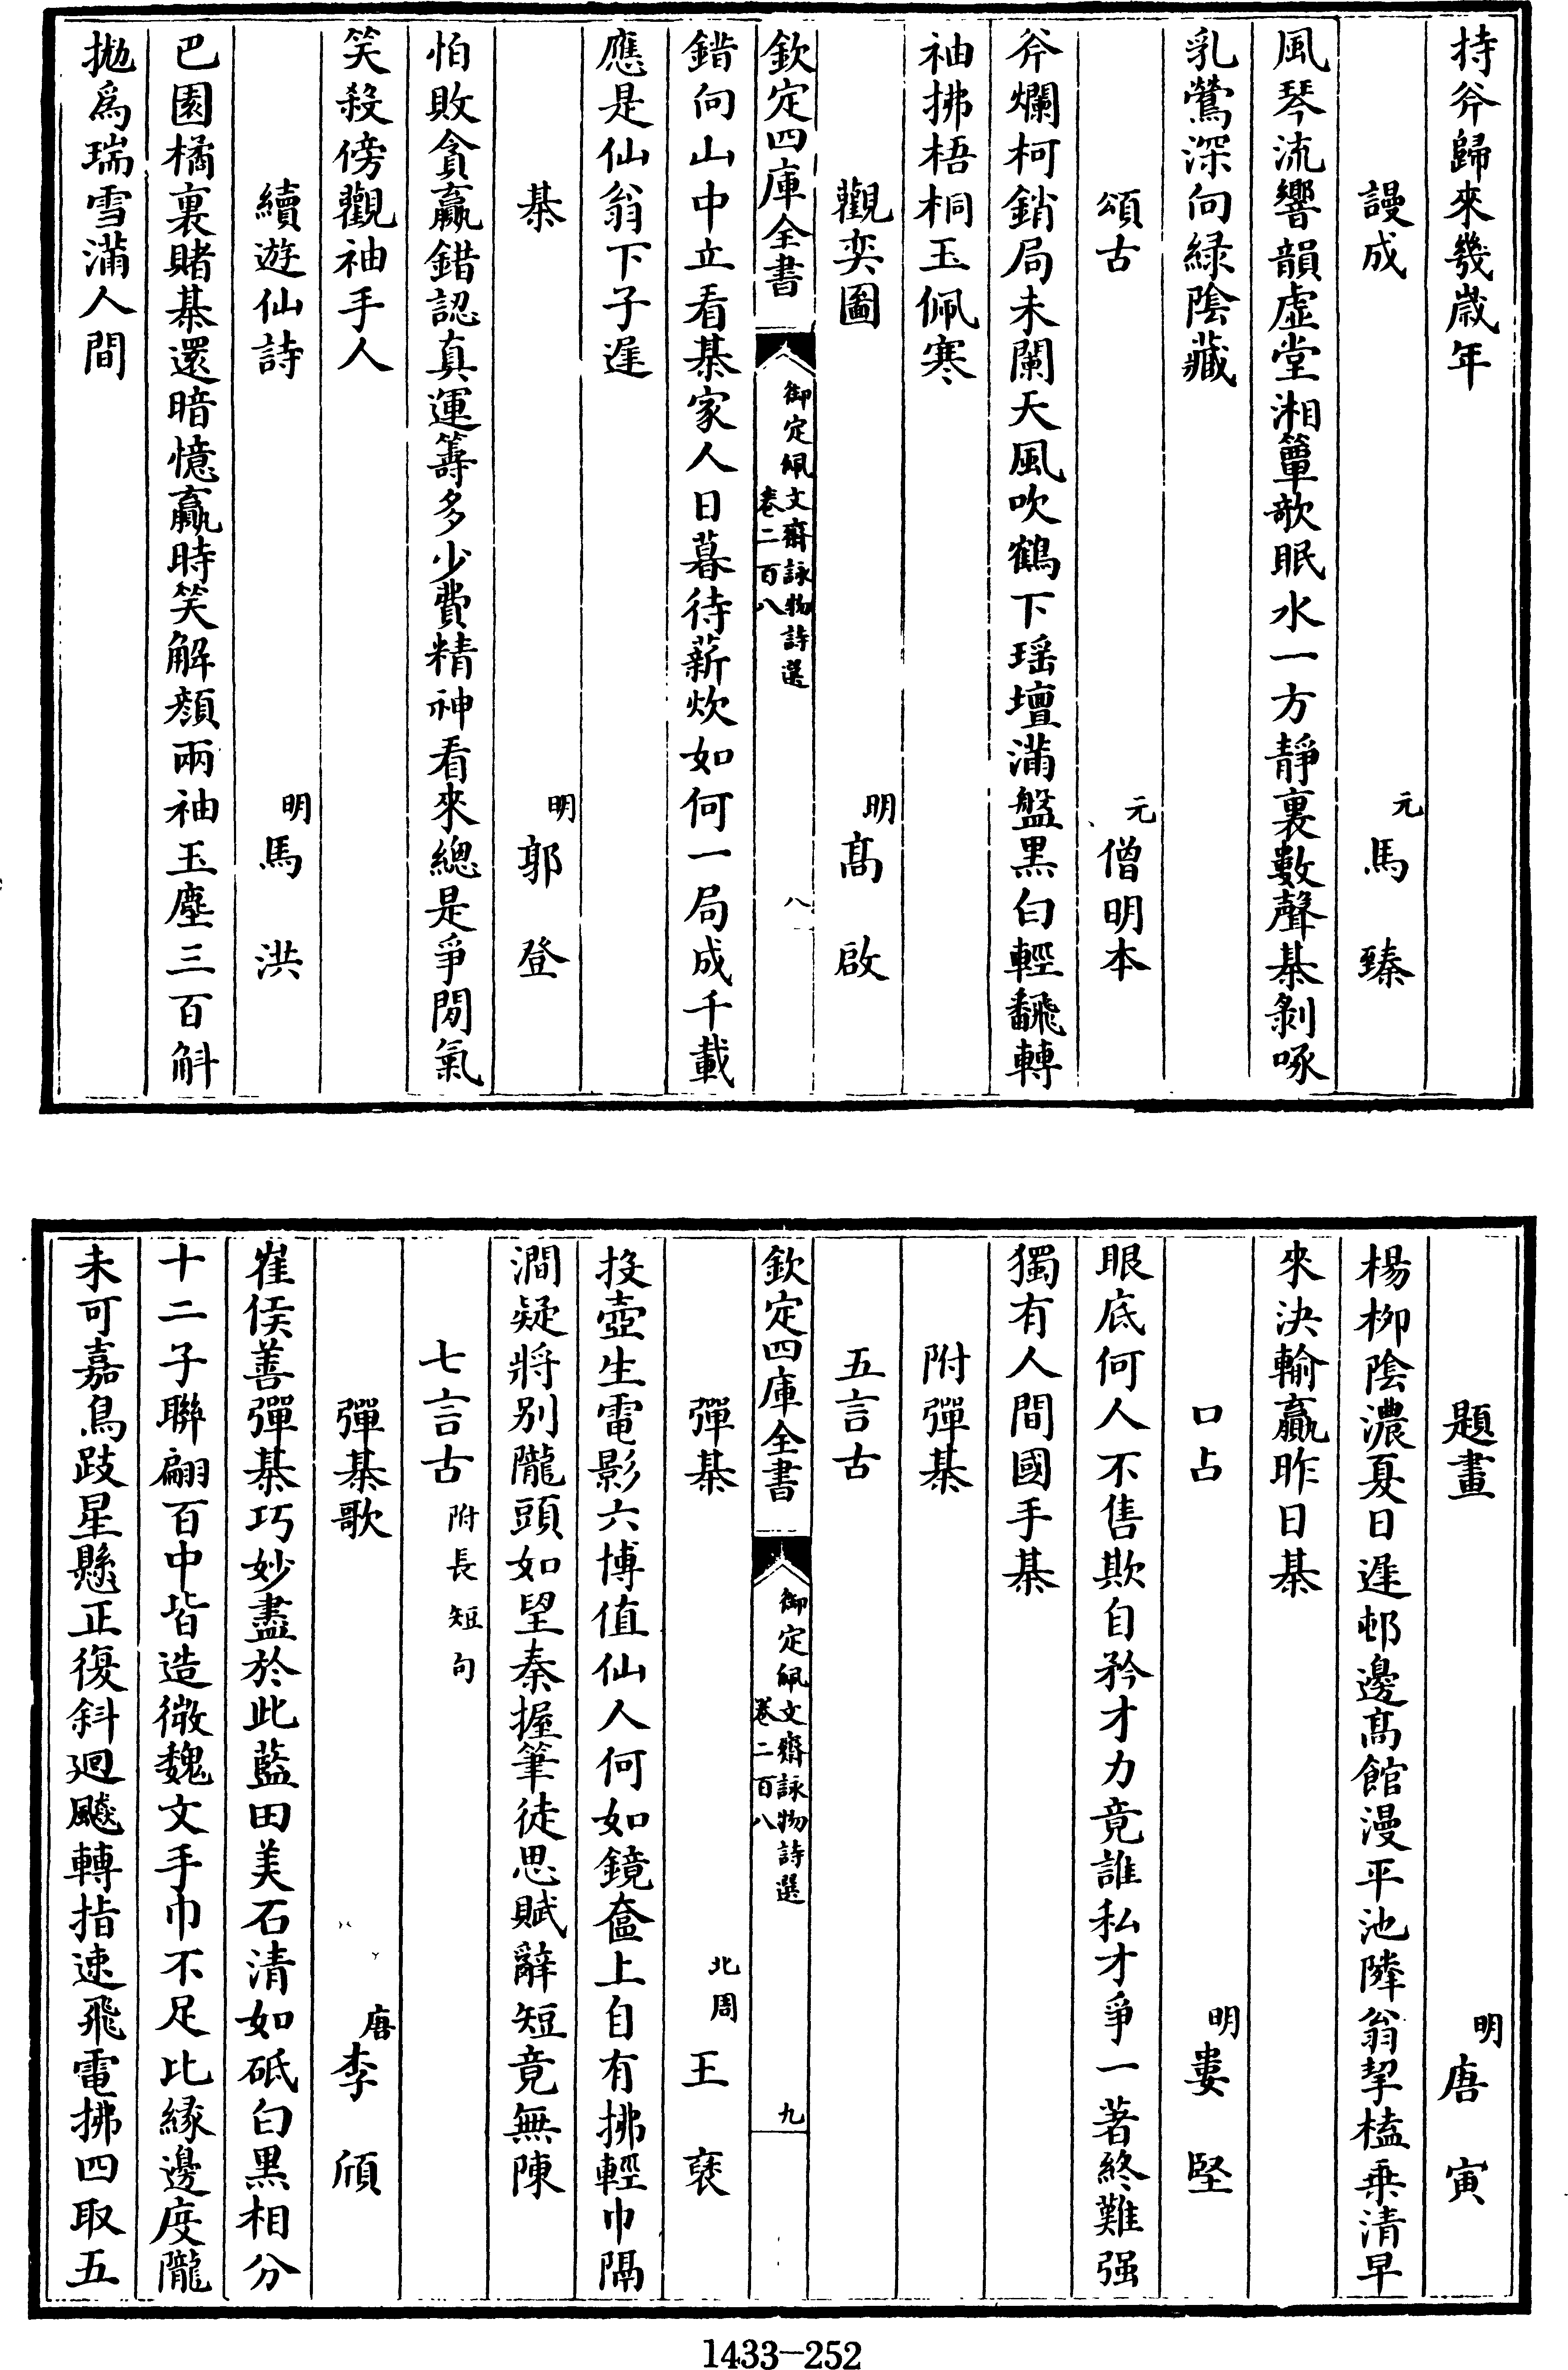 持斧歸來幾歲年
謾成 元 馬臻
風琴流響韻虛堂湘簟欹眠水一方靜裏數聲棊剝啄
乳鶯深向緑陰藏
頌古 元 僧明本
斧爛柯銷局未闌天風吹鶴下瑶壇滿盤黒白輕翻轉
袖拂梧桐玉佩寒
觀奕圖 明 髙啟
欽定四庫全書 御定佩文齋詠物詩選 卷二百八 八
錯向山中立看棊家人日暮待薪炊如何一局成千載
應是仙翁下子遲
棊 明 郭登
怕敗貪贏錯認真運籌多少費精神看來總是爭閒氣
笑殺傍觀袖手人
續遊仙詩 明 馬洪
巴園橘裏賭棊還暗憶贏時笑解顔兩袖玉塵三百斛
拋爲瑞雪滿人間
題畫 明 唐寅
楊柳陰濃夏日遲邨邊髙館漫平池隣翁挈榼乗清早
來決輸贏昨日棊
口占 明 婁堅
眼底何人不售欺自矜才力竟誰私才爭一著終難强
獨有人間國手棊
附彈棊
五言古
欽定四庫全書 御定佩文齋詠物詩選 卷二百八 九
彈棊 北周 王襃
投壺生電影六博值仙人何如鏡奩上自有拂輕巾隔
澗疑將别隴頭如望秦握筆徒思賦辭短竟無陳
七言古 附長短句
彈棊歌 唐 李頎
崔侯善彈棊巧妙盡於此藍田美石清如砥白黒相分
十二子聯翩百中皆造微魏文手巾不足比緣邊度隴
未可嘉鳥跂星懸正復斜迴飈轉指速飛電拂四取五
1433-252